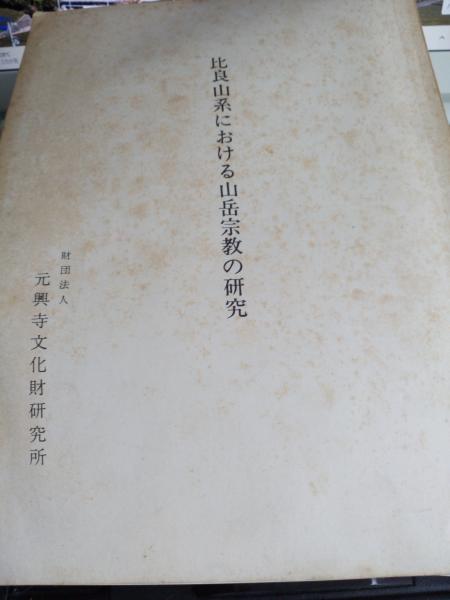 比良山系における山岳宗教の研究
財団法人
元興寺文化財研究所